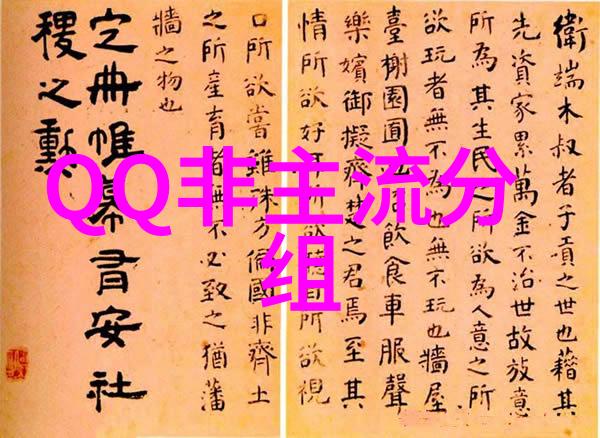 衛端木叔者子貢之世也藉其
先資家累萬金不治世故放意
所為其生民之所欲為人意之所
欲玩者無不為也無不玩也牆屋
臺榭園囿飲食車服聲
樂嬪御擬齊楚之君焉至其
情所欲好耳所欲聽目所欲視
口所欲嘗雖殊方偏國非齊土
之所產育者無不必致之猶藩
牆之物也
定冊帷幕有安社
稷之勳
QQ非主流分
组